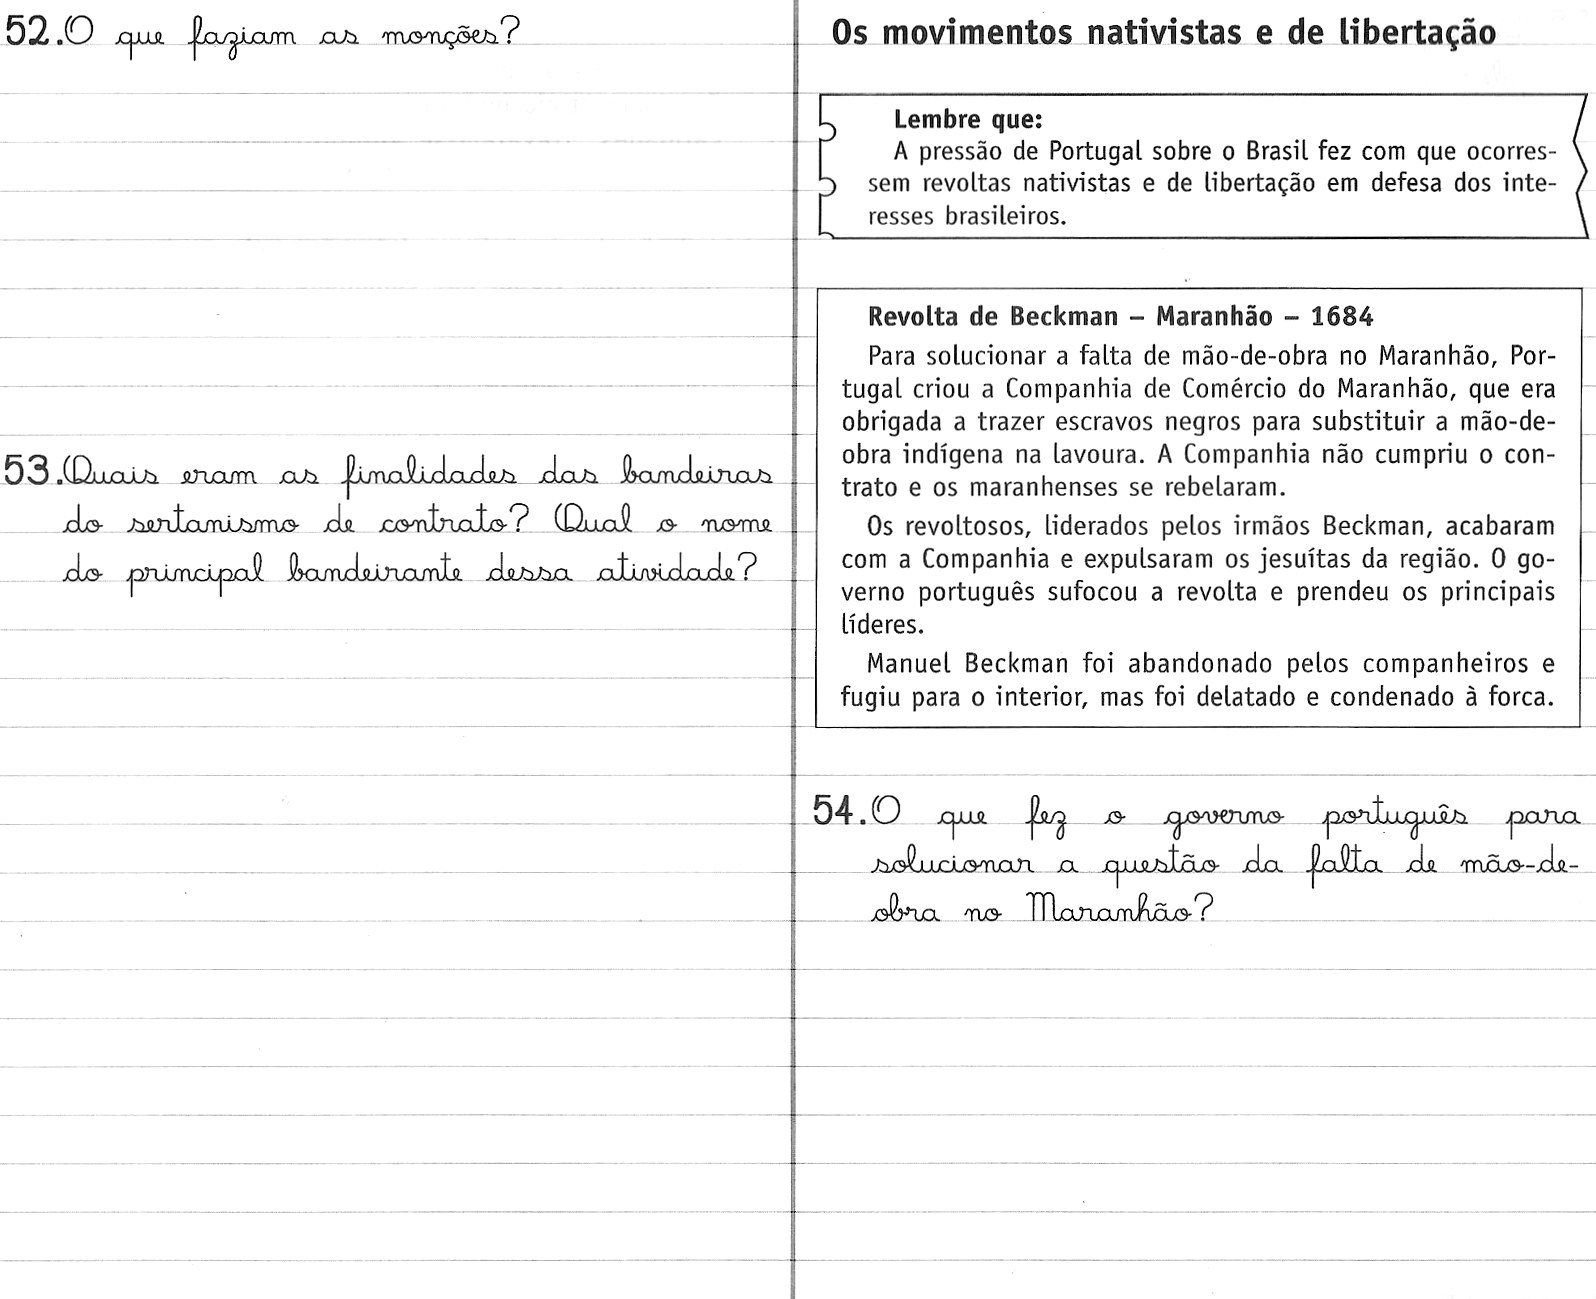 52. O que faziam as monções?
53. Quais eram as finalidades das bandeiras
do sertanismo de contrato? Qual o nome
do principal bandeirante dessa atividade?
Os movimentos nativistas e de libertação
Lembre que:
A pressão de Portugal sobre o Brasil fez com que ocorres-
sem revoltas nativistas e de libertação em defesa dos inte-
resses brasileiros.
Revolta de Beckman – Maranhão – 1684
Para solucionar a falta de mão-de-obra no Maranhão, Por-
tugal criou a Companhia de Comércio do Maranhão, que era
obrigada a trazer escravos negros para substituir a mão-de-
obra indígena na lavoura. A Companhia não cumpriu o con-
trato e os maranhenses se rebelaram.
Os revoltosos, liderados pelos irmãos Beckman, acabaram
com a Companhia e expulsaram os jesuítas da região. O go-
verno português sufocou a revolta e prendeu os principais
líderes.
Manuel Beckman foi abandonado pelos companheiros e
fugiu para o interior, mas foi delatado e condenado à forca.
54. O que fez o governo português para
solucionar a questão da falta de mão-de-
obra no Maranhão?